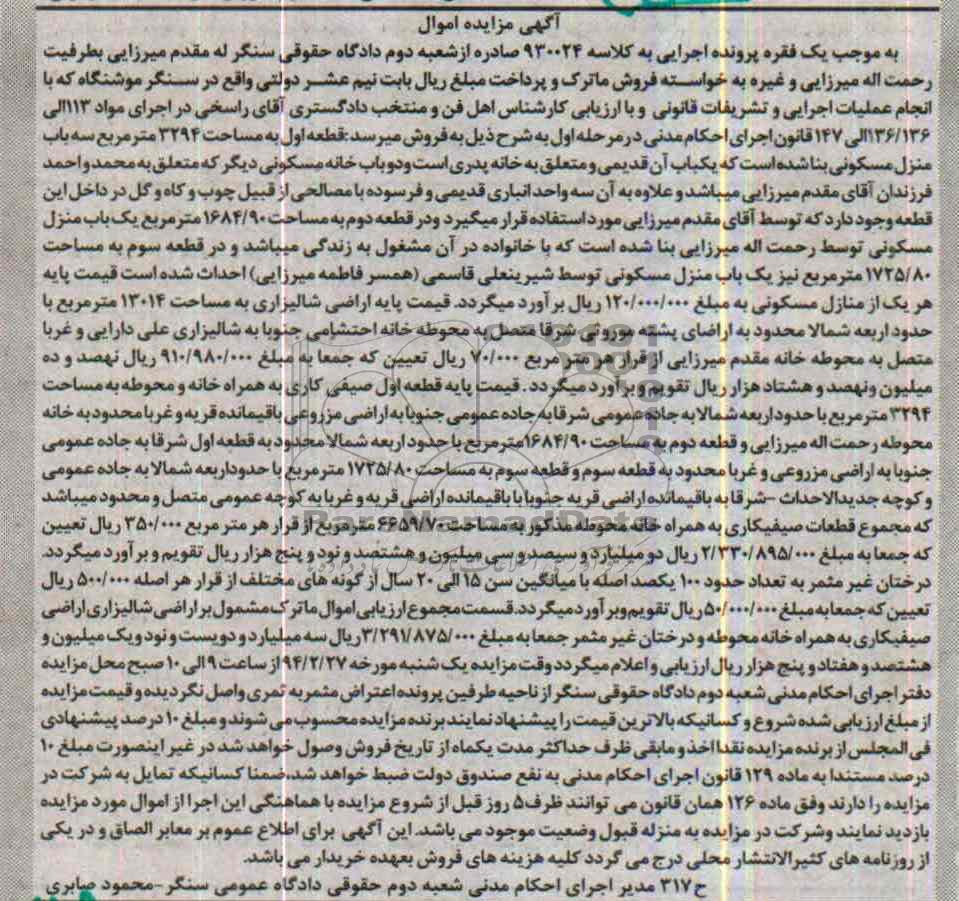 آگهی مزایده اموال
به موجب یک فقره پرونده اجرایی به کلاسه ۹۳۰۰۲۴ صادره ازشعبه دوم دادگاه حقوقی سنگر له مقدم میرزایی بطرفیت
رحمت اله میرزایی و غیره به خواسته فروش ماترک و پرداخت مبلغ ریال بابت نیم عشر دولتی واقع در سنگر موشنگاه که با
انجام عملیات اجرایی و تشریفات قانونی و با ارزیابی کارشناس اهل فن و منتخب دادگستری آقای راسخی در اجرای مواد ۱۱۳الی
۱۳۶/۱۳۶الی ۱۴۷ قانون اجرای احکام مدنی در مرحله اول به شرح ذیل به فروش میرسد:قطعه اول به مساحت ۳۲۹۴ متر مربع سه باب
منزل مسکونی بنا شده است که یکباب آن قدیمی و متعلق به خانه پدری است ودو باب خانه مسکونی دیگر که متعلق به محمد و احمد
فرزندان آقای مقدم میرزایی میباشد و علاوه به آن سه واحد انباری قدیمی و فرسوده با مصالحی از قبیل چوب و کاه و گل در داخل این
قطعه وجود دارد که توسط آقای مقدم میرزایی مورد استفاده قرار میگیرد ودر قطعه دوم به مساحت ۱۶۸۴/۹۰ متر مربع یک باب منزل
مسکونی توسط رحمت اله میرزایی بنا شده است که با خانواده در آن مشغول به زندگی میباشد و در قطعه سوم به مساحت
۱۷۲۵/۸۰ مترمربع نیز یک باب منزل مسکونی توسط شیرینعلی قاسمی (همسر فاطمه میرزایی) احداث شده است قیمت پایه
هر یک از منازل مسکونی به مبلغ ۱۲۰/۰۰۰/۰۰۰ ریال برآورد میگردد. قیمت پایه اراضی شالیزاری به مساحت ۱۳۰۱۴ مترمربع با
حدود اربعه شمالا محدود به اراضای پشته موروثی شرقا متصل به محوطه خانه احتشامی جنوبا به شالیزاری علی دارایی و غربا
متصل به محوطه خانه مقدم میرزایی از قرار هر متر مربع ۷۰/۰۰۰ ریال تعیین که جمعا به مبلغ ۹۱۰/۹۸۰/۰۰۰ ریال نهصد و ده
میلیون ونهصد و هشتاد هزار ریال تقویم و برآورد میگردد . قیمت پایه قطعه اول صیفی کاری به همراه خانه و محوطه به مساحت
۳۲۹۴ متر مربع با حدود اربعه شمالا به جاده عمومی شرقا به جاده عمومی جنوبا به اراضی مزروعی باقیمانده قریه و غربا محدود به خانه
محوطه رحمت اله میرزایی و قطعه دوم به مساحت ۱۶۸۴/۹۰مترمربع با حدود اربعه شمالا محدود به قطعه اول شرقا به جاده عمومی
جنوبا به اراضی مزروعی و غربا محدود به قطعه سوم و قطعه سوم به مساحت ۱۷۲۵/۸۰ مترمربع با حدوداربعه شمالا به جاده عمومی
و کوچه جدیدالاحداث -شرقا به باقیمانده اراضی قریه جنوبا با باقیمانده اراضی قریه و غربا به کوچه عمومی متصل و محدود میباشد
که مجموع قطعات صیفیکاری به همراه خانه محوطه مذکور به مساحت ۶۶۵۹/۷۰ مترمربع از قرار هر متر مربع ۳۵۰/۰۰۰ ریال تعیین
که جمعا به مبلغ ۲/۳۳۰/۸۹۵/۰۰۰ ریال دو میلیارد و سیصد و سی میلیون و هشتصد و نود و پنج هزار ریال تقویم و برآورد میگردد.
درختان غیر مثمر به تعداد حدود ۱۰۰ یکصد اصله با میانگین سن ۱۵ الی ۲۰ سال از گونه های مختلف از قرار هر اصله ۵۰۰/۰۰۰ ریال
تعیین که جمعا به مبلغ ۵۰/۰۰۰/۰۰۰ ریال تقویم وبر آورد میگردد.قسمت مجموع ارزیابی اموال ماترک مشمول بر اراضی شالیزاری اراضی
صیفیکاری به همراه خانه محوطه و درختان غیر مثمر جمعا به مبلغ ۳/۲۹۱/۸۷۵/۰۰۰ریال سه میلیارد و دویست و نود و یک میلیون و
هشتصد و هفتاد و پنج هزار ریال ارزیابی و اعلام میگردد وقت مزایده یک شنبه مورخه ۹۴/۲/۲۷از ساعت ۹ الی ۱۰ صبح محل مزایده
دفتر اجرای احکام مدنی شعبه دوم دادگاه حقوقی سنگر از ناحیه طرفین پرونده اعتراض مثمر به ثمری واصل نگردیده و قیمت مزایده
از مبلغ ارزیابی شده شروع و کسانیکه بالاترین قیمت را پیشنهاد نمایند برنده مزایده محسوب می شوند و مبلغ ۱۰ درصد پیشنهادی
فی المجلس از برنده مزایده نقدا اخذ و مابقی ظرف حداکثر مدت یکماه از تاریخ فروش وصول خواهد شد در غیر اینصورت مبلغ ۱۰
درصد مستندا به ماده ۱۲۹ قانون اجرای احکام مدنی به نفع صندوق دولت ضبط خواهد شد،ضمنا کسانیکه تمایل به شرکت در
مزایده را دارند وفق ماده ۱۲۶ همان قانون می توانند ظرف۵ روز قبل از شروع مزایده با هماهنگی این اجرا از اموال مورد مزایده
بازدید نمایند وشرکت در مزایده به منزله قبول وضعیت موجود می باشد. این آگهی برای اطلاع عموم بر معابر الصاق و در یکی
از روزنامه های کثیرالانتشار محلی درج می گردد کلیه هزینه های فروش بعهده خریدار می باشد.
ح۳۱۷ مدیر اجرای احکام مدنی شعبه دوم حقوقی دادگاه عمومی سنگر-محمود صابری